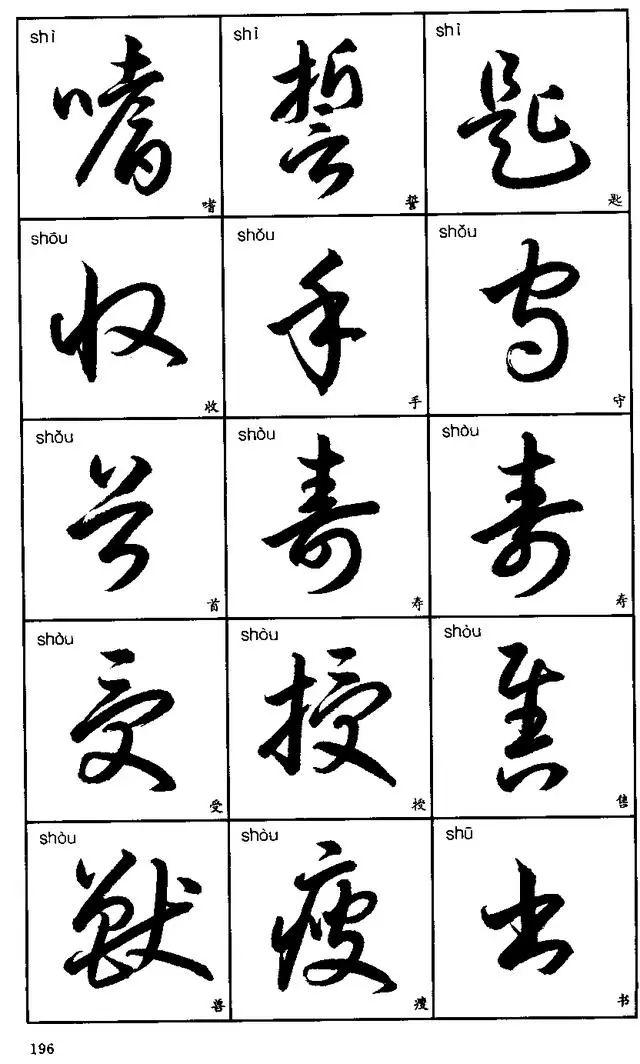 shì shì shì
嗜 誓 匙
嗜 誓 匙
shōu shǒu shǒu
收 手 守
收 手 守
shǒu shòu shòu
首 寿 寿
首 寿 寿
shòu shòu shòu
受 授 售
受 授 售
shòu shòu shū
獸 瘦 书
兽 瘦 书
196